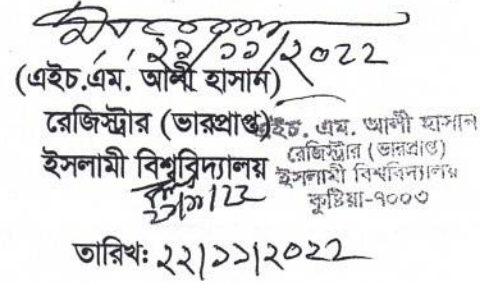 ২২/১১/২০২২
(এইচ.এম. আলী হাসান)
রেজিস্ট্রার (ভারপ্রাপ্ত)
ইসলামী বিশ্ববিদ্যালয়
এইচ. এম. আলী হাসান
রেজিস্ট্রার (ভারপ্রাপ্ত)
ইসলামী বিশ্ববিদ্যালয়
কুষ্টিয়া-৭০০৩
তারিখ: ২২/১১/২০২২